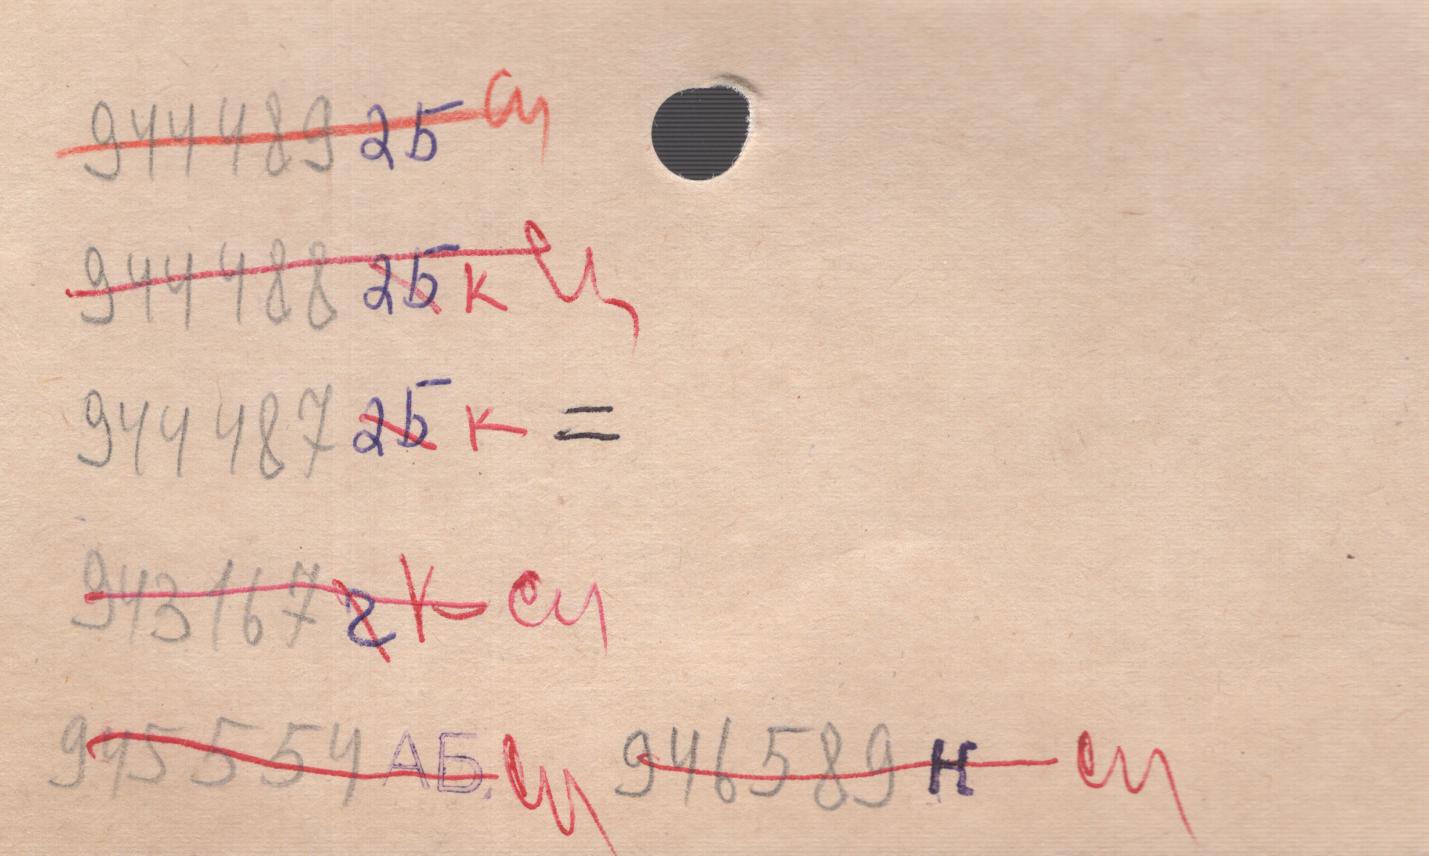 944489 2б сч
944488 2б к сч
944487 2б к =
943167 2 к сч
945554 АБ. сч 946589 н сч